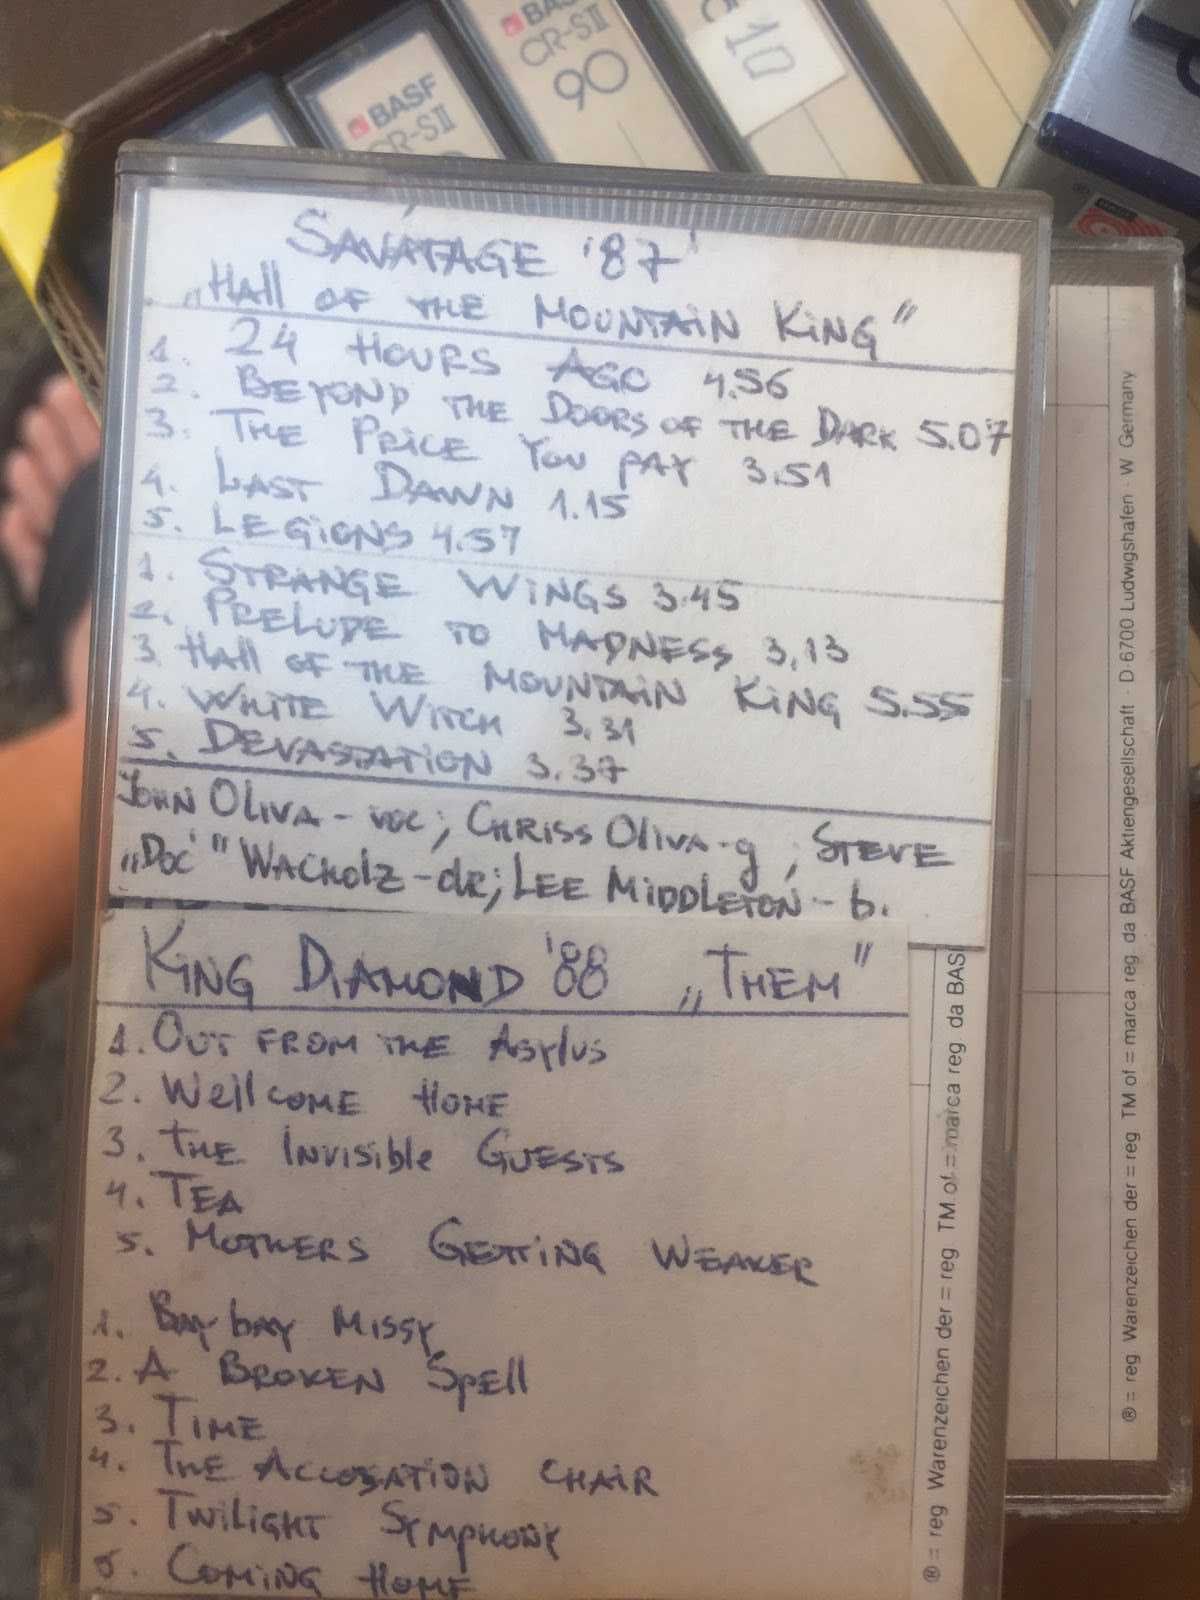 BASF
CR-SII
BASF
CR-SII
90
10
SAVATAGE '87'
„HAll OF THE MOUNTAIN KING"
1. 24 HOURS AGO 4.56
2. BEYOND THE DOORS OF THE DARK 5.07
3. THE PRICE YOU PAY 3.51
4. LAST DAWN 1.15
5. LEGIONS 4.57
1. STRANGE WINGS 3.45
2. PRELUDE TO MADNESS 3,13
3. HAll OF THE MOUNTAIN KING 5.55
4. WHITE WITCH 3.31
5. DEVASTATION 3.37
JOHN OLIVA - voc; CHRISS OLIVA-g; STEVE
„Doc" WACHOLZ - dr; LEE MIDDLETON - b.
KING DIAMOND '88 „THEM"
1. OUT FROM THE ASYlUS
2. WEllCOME HOME
3. THE INVISIBlE GUESTS
4. TEA
5. MOTHERS GETTING WEAKER
1. BAY bAY MISSY
2. A BROKEN SPEll
3. TIME
4. THE ACCUSATION CHAIR
5. TWILIGHT SYMPHONY
6. COMING HOME
® = reg Warenzeichen der = reg TM of = marca reg da BASF
® = reg Warenzeichen der = reg TM of = marca reg da BASF Aktiengesellschaft · D-6700 Ludwigshafen · W Germany